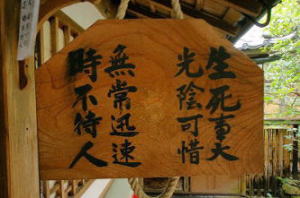 生死事大
光陰可惜
無常迅速
時不待人